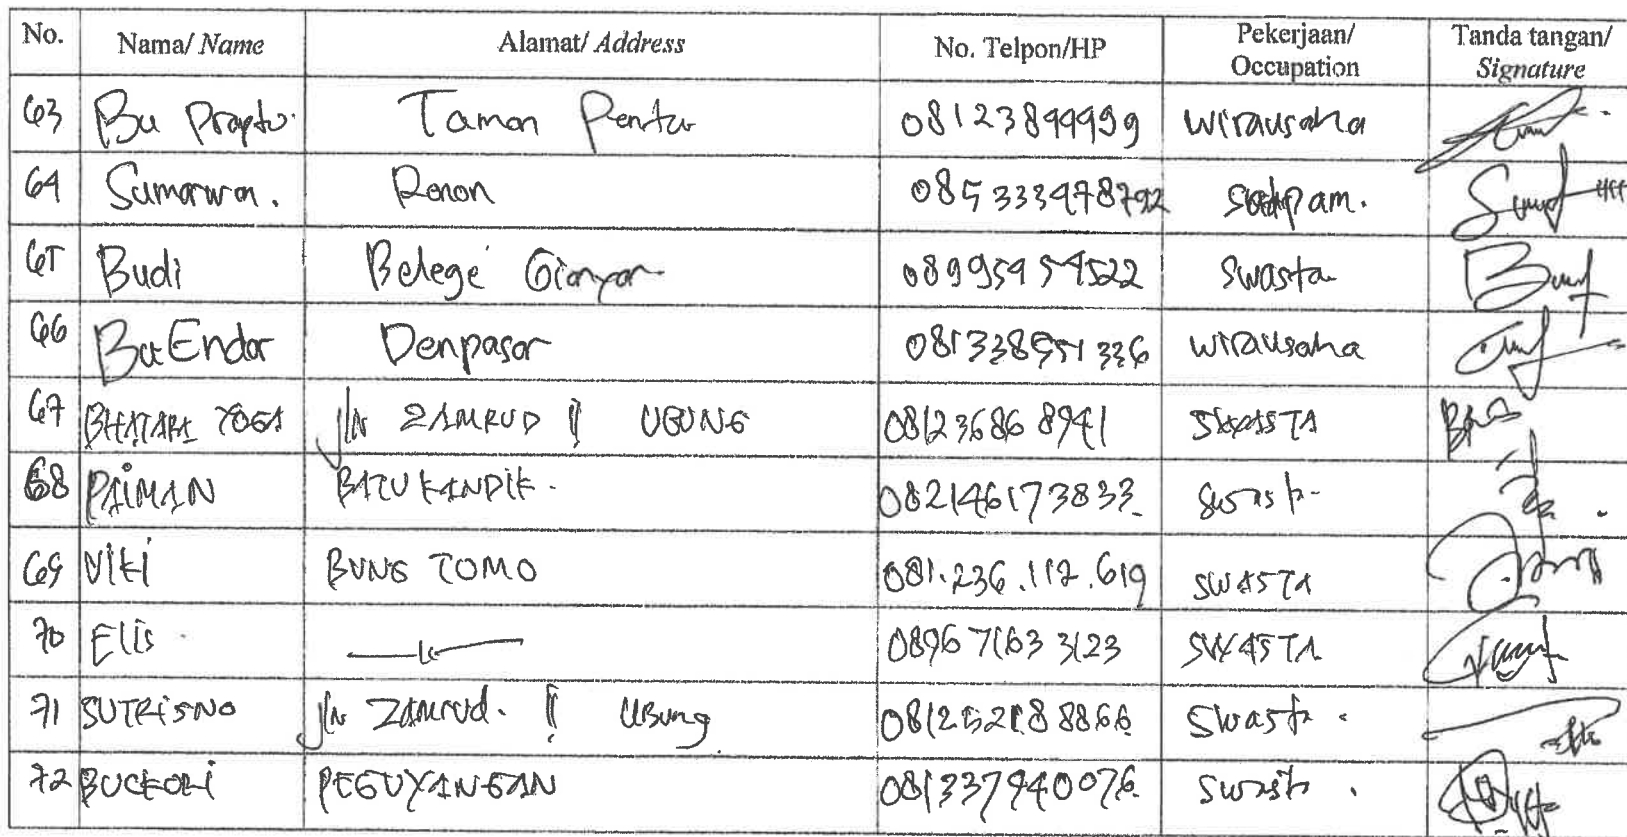 No. Nama/ Name Alamat/ Address No. Telpon/HP Pekerjaan/ Occupation Tanda tangan/ Signature
63 Bu Prapto. Taman Penta 08123899999 wirausaha
64 Sumarwan. Renon 085333478792 satpam.
65 Budi Belege Gianyar 08995954522 swasta
66 Bu Endar Denpasar 081338951336 wirausaha
67 BHATARA YOGA Jln ZAMRUD II UBUNG 081236868941 SWASTA
68 PAIMAN BATU KANDIK. 082146173833 swasta
69 VIKI BUNG TOMO 081.236.112.619 SWASTA
70 Elis. —〃— 089671633123 SWASTA
71 SUTRISNO Jln Zamrud. II Ubung 081252188866 Swasta.
72 BUCKORI PEGUYANGAN 081337940076 swasta.